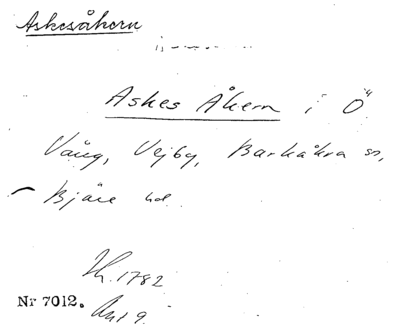 Askesåkern
Askes Åkern i Ö
Vång, Vejby, Barkåkra sn,
Bjäre hd
Nr 7012.